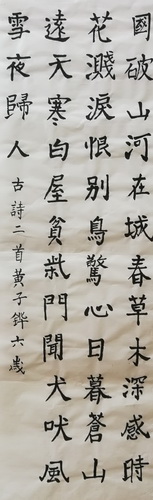 國破山河在城春草木深感時
花濺淚恨别鳥驚心日暮蒼山
遠天寒白屋貧柴門聞犬吠風
雪夜歸人
古詩二首黃子鏵六歲